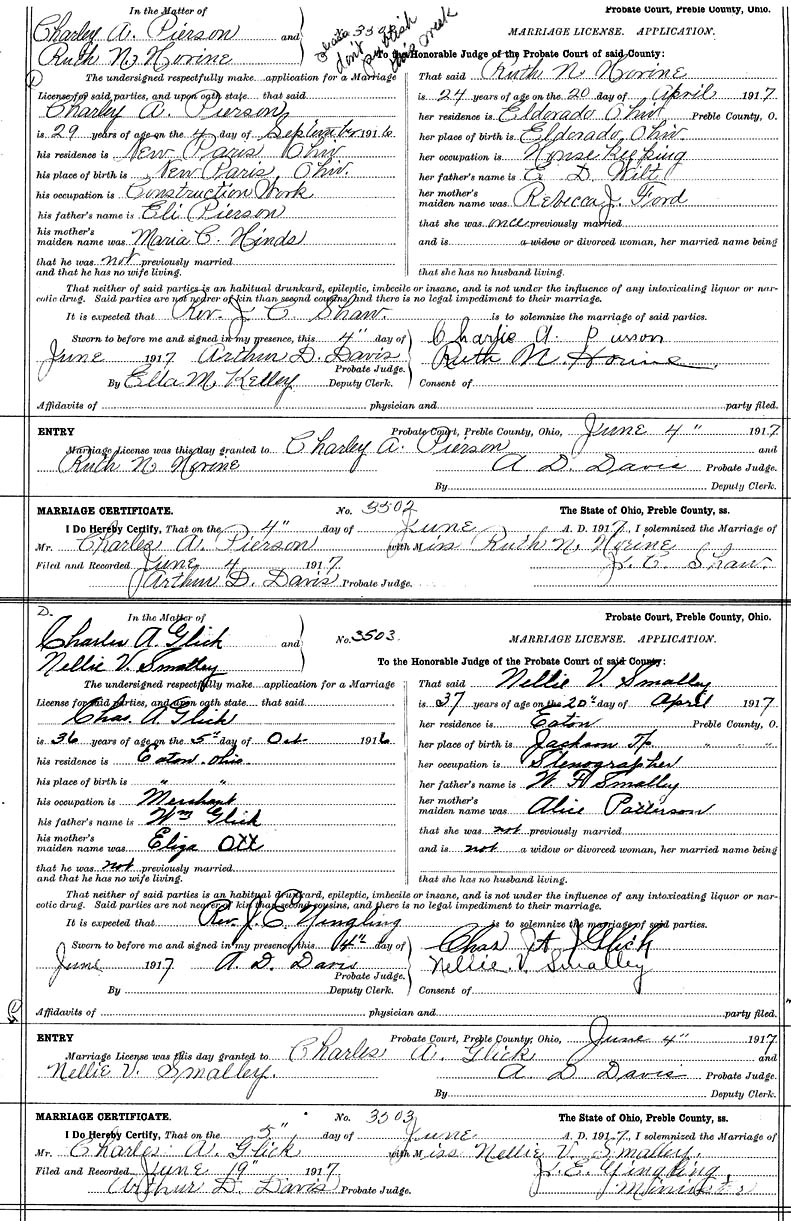 In the Matter of
Charley A. Pierson and
Ruth N. Horine
3502
don't publish
this week
Probate Court, Preble County, Ohio.
MARRIAGE LICENSE. APPLICATION.
To the Honorable Judge of the Probate Court of said County:
The undersigned respectfully make application for a Marriage
License for said parties, and upon oath state that said
Charley A. Pierson
is 29 years of age on the 4 day of September 1916
his residence is New Paris Ohio
his place of birth is New Paris, Ohio.
his occupation is Construction Work
his father's name is Eli Pierson
his mother's
maiden name was Maria C. Hinds
that he was not previously married
and that he has no wife living.
That said Ruth N Horine
is 24 years of age on the 20 day of April 1917
her residence is Eldorado Ohio Preble County, O.
her place of birth is Eldorado, Ohio.
her occupation is House Keeping
her father's name is C. D. Wilt
her mother's
maiden name was Rebecca J. Ford
that she was once previously married
and is a widow or divorced woman, her married name being
that she has no husband living.
That neither of said parties is an habitual drunkard, epileptic, imbecile or insane, and is not under the influence of any intoxicating liquor or nar-
cotic drug. Said parties are not nearer of kin than second cousins, and there is no legal impediment to their marriage.
It is expected that Rev. J. C. Shaw is to solemnize the marriage of said parties.
Sworn to before me and signed in my presence, this 4" day of
June 1917 Arthur D. Davis
Probate Judge.
By Ella M. Kelley Deputy Clerk.
Charlie A Pierson
Ruth N Horine
Consent of
Affidavits of physician and party filed.
ENTRY Probate Court, Preble County, Ohio, June 4" 1917.
Marriage License was this day granted to Charley A. Pierson and
Ruth N. Horine A. D. Davis Probate Judge.
By Deputy Clerk.
MARRIAGE CERTIFICATE. No. 3502 The State of Ohio, Preble County, ss.
I Do Hereby Certify, That on the 4" day of June A. D. 1917, I solemnized the Marriage of
Mr. Charles A. Pierson with Miss Ruth N. Horine
Filed and Recorded June 4 1917. J. C. Shaw.
Arthur D. Davis Probate Judge.
D.
In the Matter of
Charles A. Glick and
Nellie V. Smalley
No. 3503.
Probate Court, Preble County, Ohio.
MARRIAGE LICENSE. APPLICATION.
To the Honorable Judge of the Probate Court of said County:
The undersigned respectfully make application for a Marriage
License for said parties, and upon oath state that said
Chas. A. Glick
is 36 years of age on the 5th day of Oct 1916
his residence is Eaton. Ohio.
his place of birth is " "
his occupation is Merchant
his father's name is Wm Glick
his mother's
maiden name was Eliza Ott
that he was not previously married
and that he has no wife living.
That said Nellie V. Smalley
is 37 years of age on the 20th day of April 1917
her residence is Eaton Preble County, O.
her place of birth is Jackson Tp " " "
her occupation is Stenographer
her father's name is W. H Smalley
her mother's
maiden name was Alice Patterson
that she was not previously married
and is not a widow or divorced woman, her married name being
that she has no husband living.
That neither of said parties is an habitual drunkard, epileptic, imbecile or insane, and is not under the influence of any intoxicating liquor or nar-
cotic drug. Said parties are not nearer of kin than second cousins, and there is no legal impediment to their marriage.
It is expected that Rev. J. E. Yingling is to solemnize the marriage of said parties.
Sworn to before me and signed in my presence, this 4th day of
June 1917 A. D. Davis
Probate Judge.
By Deputy Clerk.
Chas. A. Glick
Nellie. V. Smalley
Consent of
Affidavits of physician and party filed.
ENTRY Probate Court, Preble County, Ohio, June 4" 1917.
Marriage License was this day granted to Charles A. Glick and
Nellie V. Smalley. A D Davis Probate Judge.
By Deputy Clerk.
MARRIAGE CERTIFICATE. No. 3503 The State of Ohio, Preble County, ss.
I Do Hereby Certify, That on the 5" day of June A. D. 1917, I solemnized the Marriage of
Mr. Charles A. Glick with Miss Nellie V. Smalley.
Filed and Recorded June 19" 1917. J. E. Yingling,
Arthur D. Davis Probate Judge. Minister